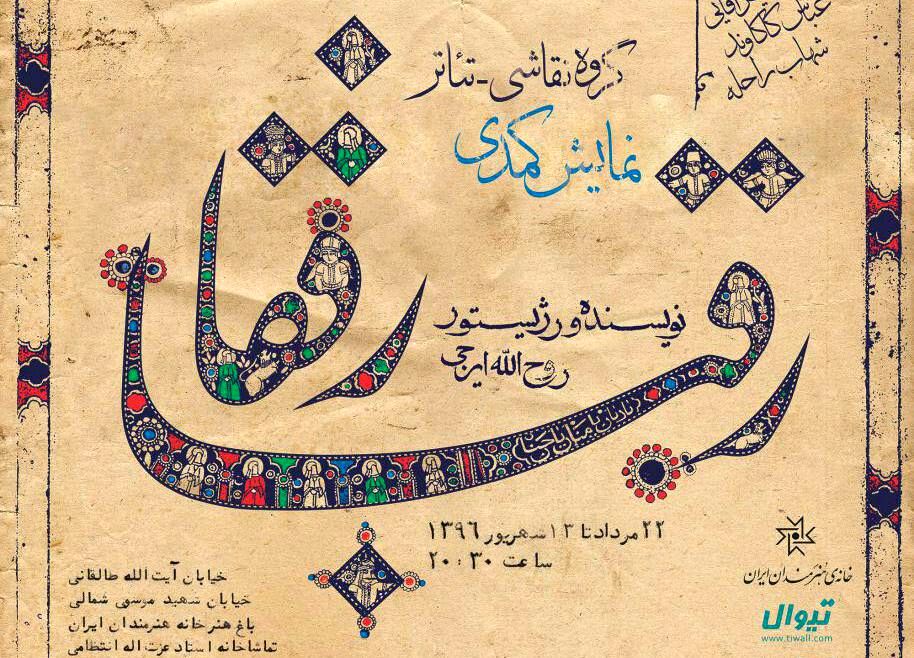 عباس کاکاوند
شهاب راحله
گروه نقاشی-تئاتر
نمایش کمدی
رقبا
رفقا
نویسنده و رژیستور
روح الله ایرجی
۲۲ مرداد تا ۱۳ شهریور ۱۳۹۶
ساعت ۲۰:۳۰
خیابان آیت الله طالقانی
خیابان شهید موسوی شمالی
باغ هنر خانه هنرمندان ایران
تماشاخانه استاد عزت اله انتظامی
خانه‌ی هنرمندان ایران
تیوال
www.tiwall.com